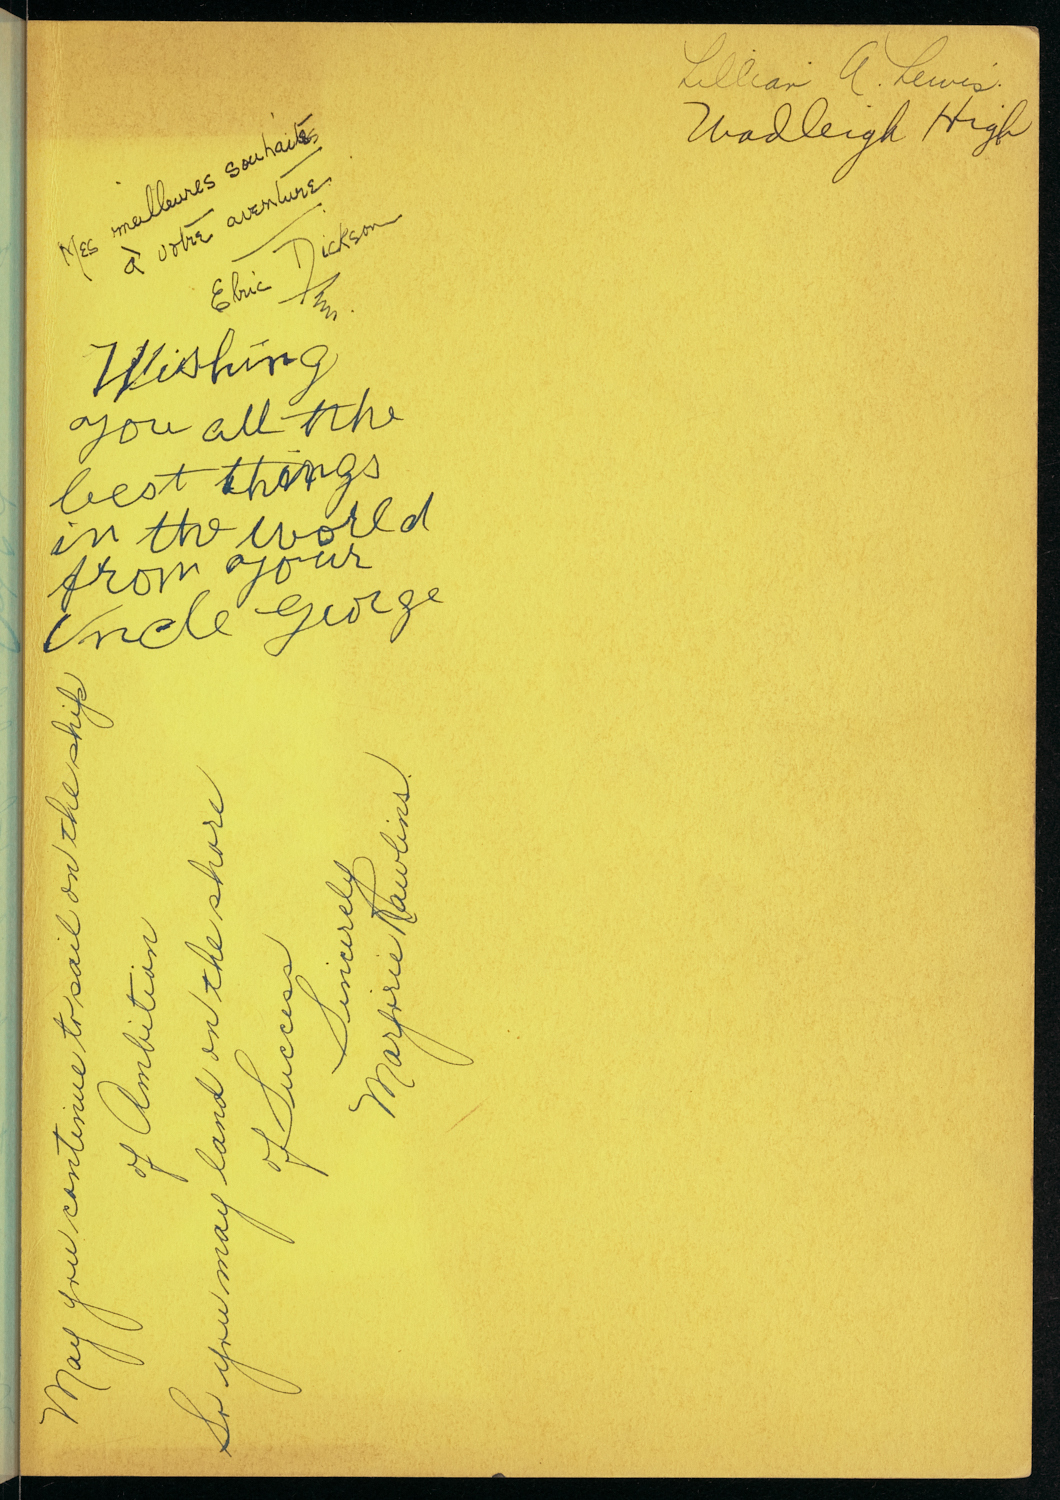 Lillian A. Lewis.
Wadleigh High
Mes meilleures souhaites
à votre aventure.
Elric Dickson
Wishing
you all the
best things
in the world
from your
Uncle George
May you continue to sail on the ship
of Ambition
So you may land on the shore
of Success
Sincerely
Marjorie Rawlins.